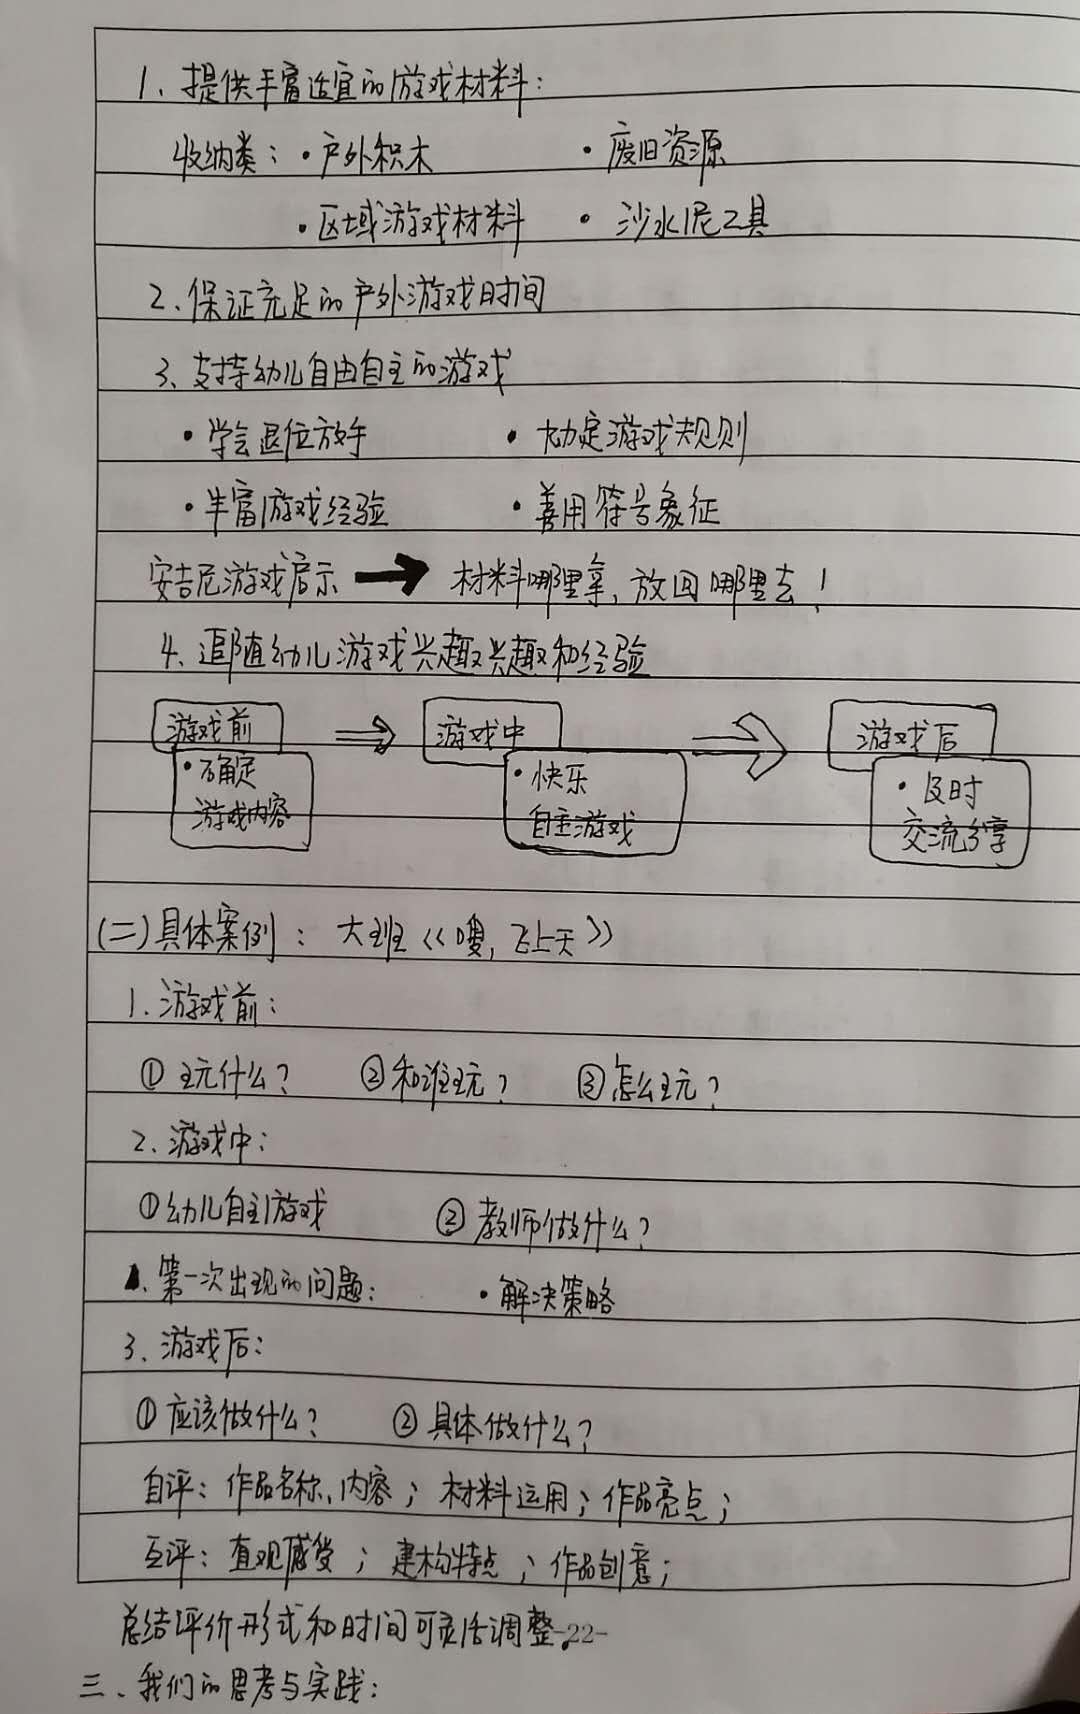 1、提供丰富适宜的游戏材料：
收纳类：·户外积木 ·废旧资源
·区域游戏材料 ·沙水泥工具
2、保证充足的户外游戏时间
3、支持幼儿自由自主的游戏
·学会退位放手 ·协定游戏规则
·丰富游戏经验 ·善用符号象征
安吉尼游戏启示 → 材料哪里拿，放回哪里去！
4、追随幼儿游戏兴趣兴趣和经验
游戏前 ⇒ 游戏中 ⇒ 游戏后
·确定 ·快乐 ·及时
游戏内容 自主游戏 交流分享
(二)具体案例：大班《嗖，飞上天》
1.游戏前：
①玩什么？ ②和谁玩？ ③怎么玩？
2.游戏中：
①幼儿自主游戏 ②教师做什么？
1、第一次出现的问题： ·解决策略
3、游戏后：
①应该做什么？ ②具体做什么？
自评：作品名称、内容；材料运用；作品亮点；
互评：直观感受；建构特点；作品创意；
总结评价形式和时间可灵活调整。
-22-
三、我们的思考与实践：